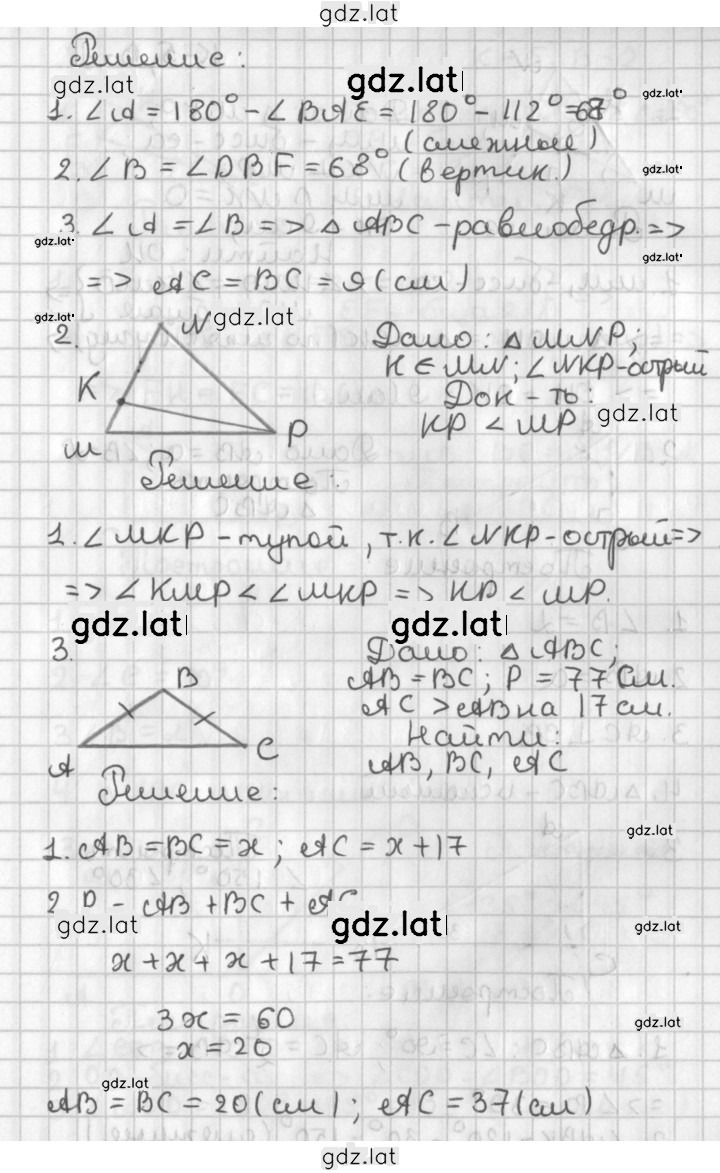 gdz.lat
Решение:
gdz.lat gdz.lat gdz.lat
1. ∠A = 180° - ∠BAE = 180° - 112° = 68°
(смежные)
2. ∠B = ∠DBF = 68° (вертик.) gdz.lat
3. ∠A = ∠B => △ ABC - равнобедр. =>
gdz.lat gdz.lat
=> AC = BC = 9 (см)
gdz.lat gdz.lat
2. N K M P
Дано: △ MNP;
K ∈ MN; ∠NKP - острый
Док-ть:
KP < MP gdz.lat
Решение:
1. ∠MKP - тупой, т.к. ∠NKP - острый =>
=> ∠KMP < ∠MKP => KP < MP.
gdz.lat gdz.lat
3. B A C
Дано: △ ABC;
AB = BC; P = 77 см.
AC > AB на 17 см.
Найти:
AB, BC, AC
Решение:
gdz.lat
1. AB = BC = x; AC = x + 17
2 P = AB + BC + AC
gdz.lat gdz.lat gdz.lat
x + x + x + 17 = 77
3x = 60
gdz.lat
x = 20
gdz.lat
AB = BC = 20 (см); AC = 37 (см)
gdz.lat